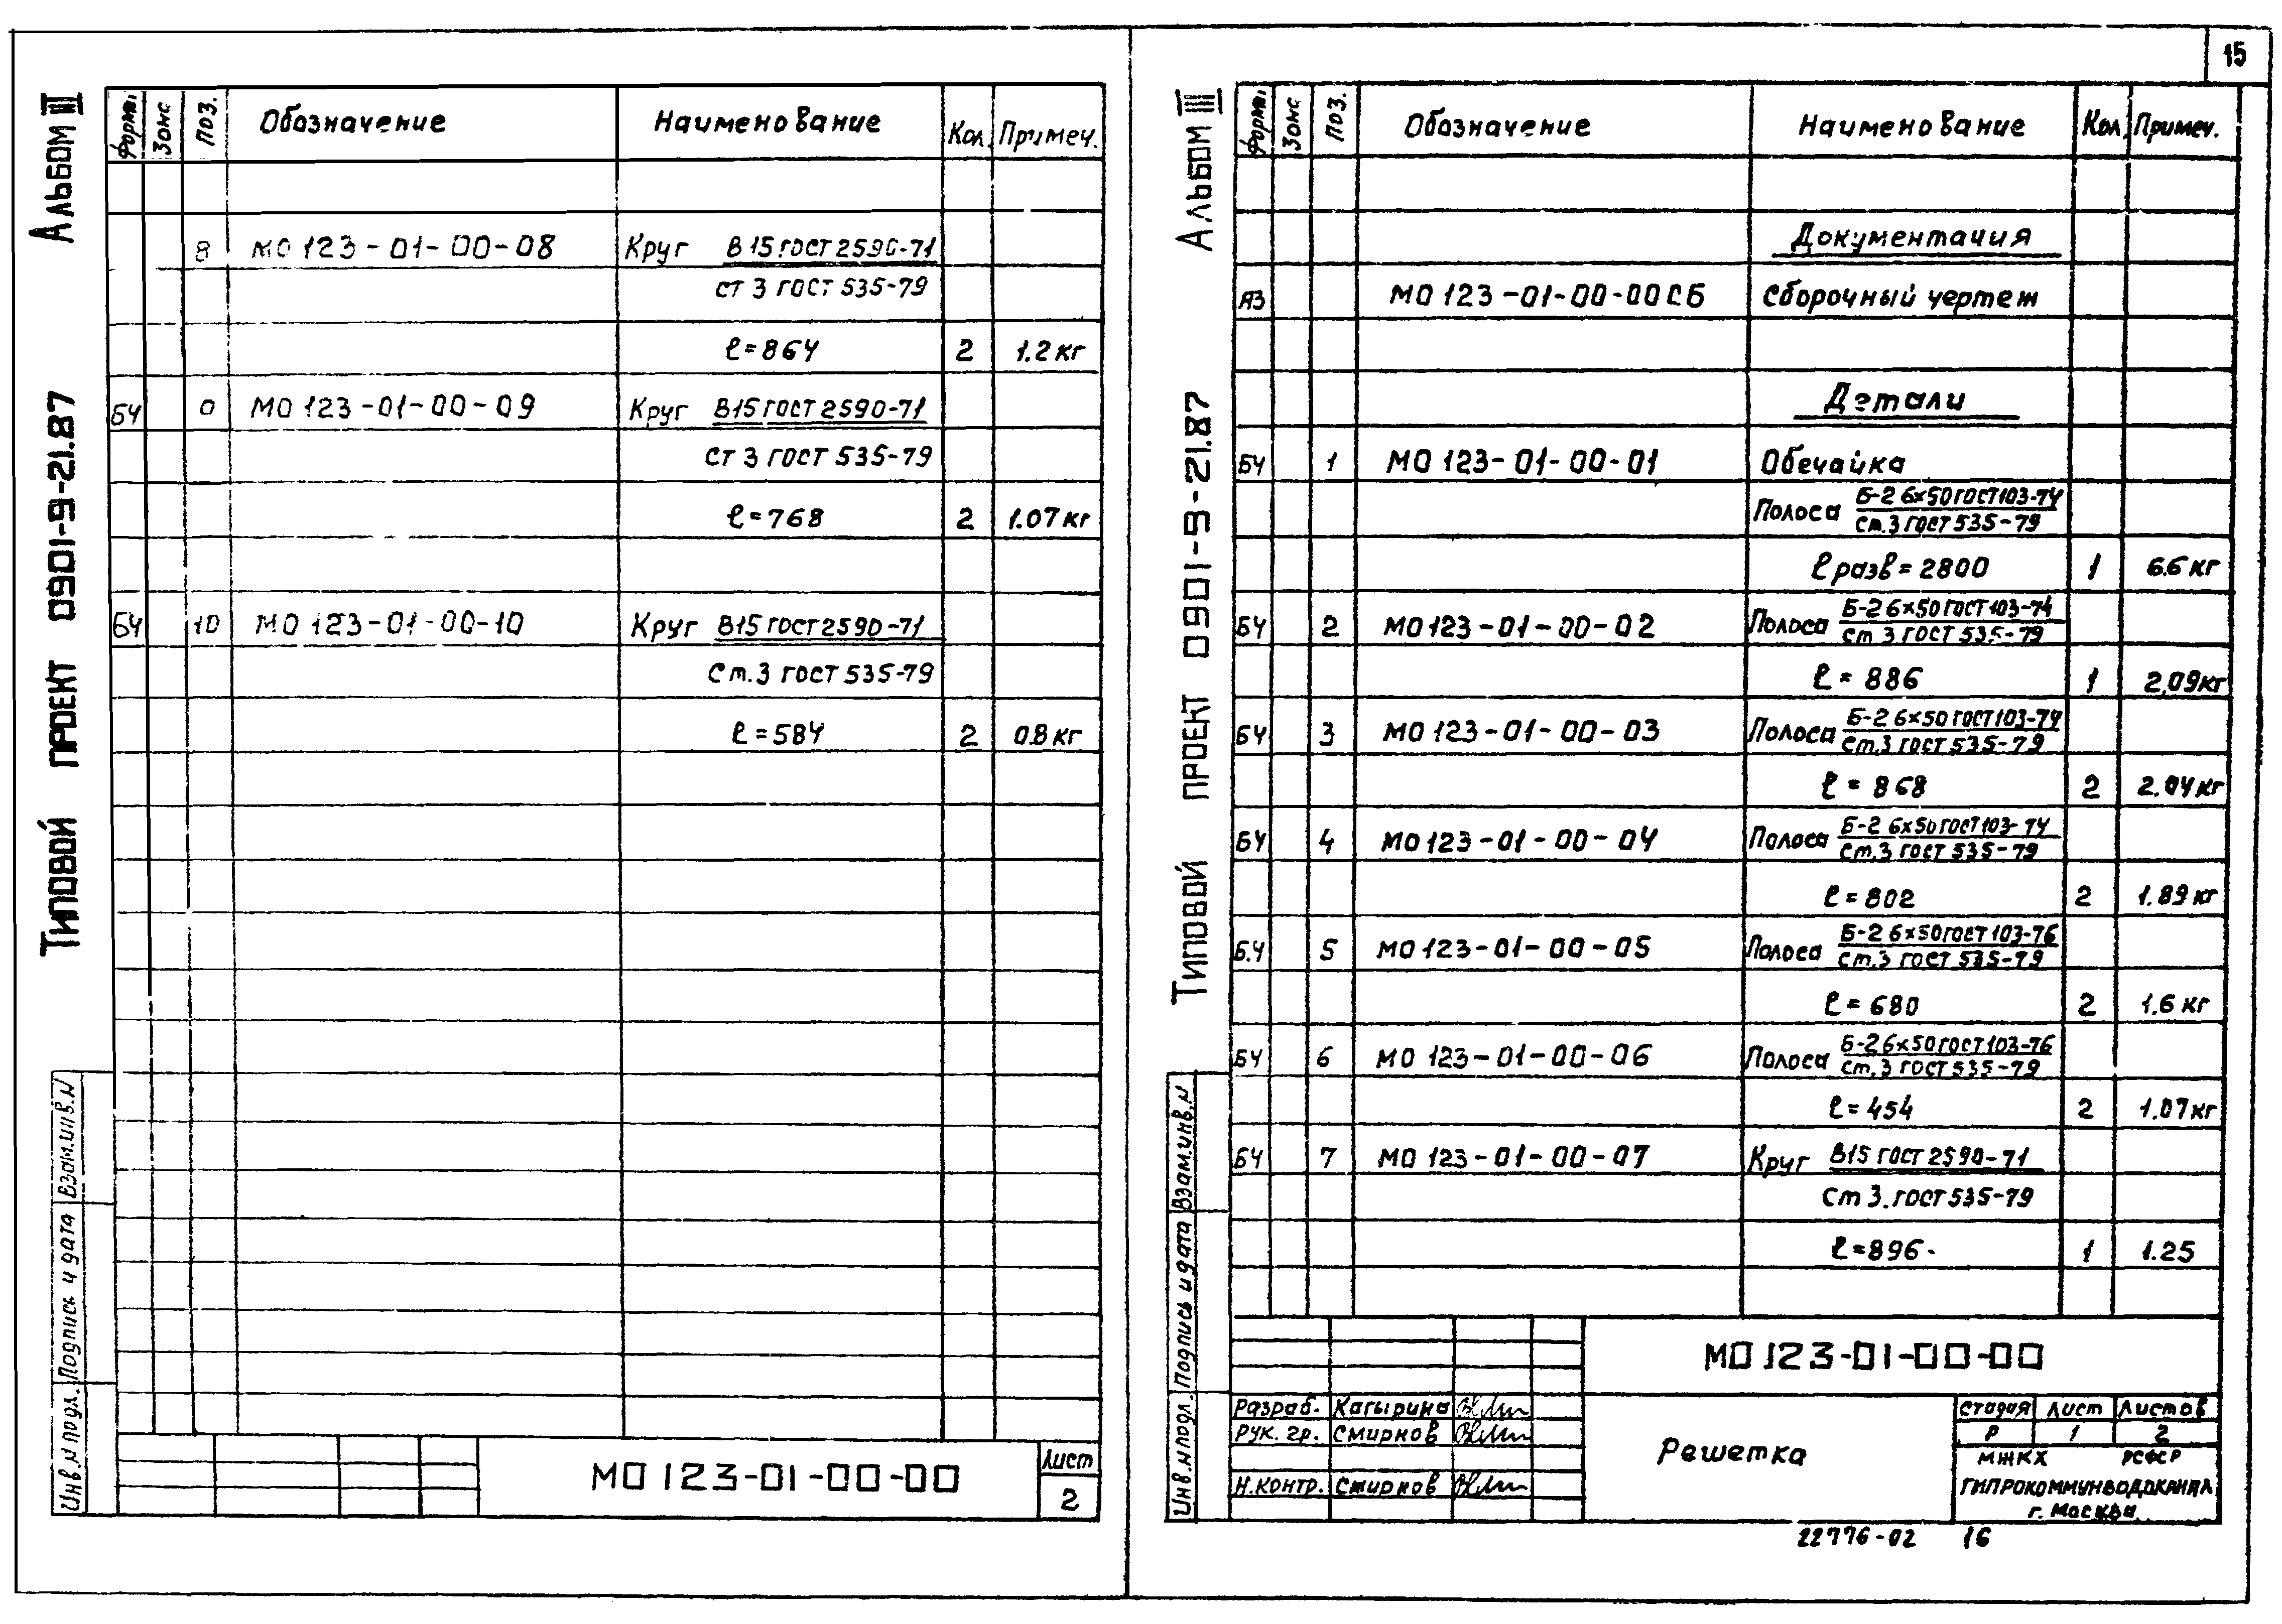 15
Альбом III
Типовой проект 0901-9-21.87
Форм. Зона Поз. Обозначение Наименование Кол. Примеч.
8 МО 123-01-00-08 Круг В15 ГОСТ 2590-71
ст 3 ГОСТ 535-79
ℓ=864 2 1.2 кг
БЧ МО 123-01-00-09 Круг В15 ГОСТ 2590-71
Ст 3 ГОСТ 535-79
ℓ=768 2 1.07 кг
БЧ 10 МО 123-01-00-10 Круг В15 ГОСТ 2590-71
Ст.3 ГОСТ 535-79
ℓ=584 2 0.8 кг
Взам.инв.N
Подпись и дата
Инв.N подл.
МО 123-01-00-00
Лист
2
Альбом III
Типовой проект 0901-9-21.87
Форм. Зона Поз. Обозначение Наименование Кол. Примеч.
Документация
А3 МО 123-01-00-00СБ Сборочный чертеж
Детали
БЧ 1 МО 123-01-00-01 Обечайка
Полоса Б-2 6×50 ГОСТ 103-74
Ст.3 ГОСТ 535-79
ℓ разв = 2800 1 6.6 кг
БЧ 2 МО 123-01-00-02 Полоса Б-2 6×50 ГОСТ 103-74
Ст 3 ГОСТ 535-79
ℓ = 886 1 2,09 кг
БЧ 3 МО 123-01-00-03 Полоса Б-2 6×50 ГОСТ 103-74
Ст.3 ГОСТ 535-79
ℓ = 868 2 2.04 кг
БЧ 4 МО 123-01-00-04 Полоса Б-2 6×50 ГОСТ 103-74
Ст.3 ГОСТ 535-79
ℓ = 802 2 1.89 кг
Б.Ч 5 МО 123-01-00-05 Полоса Б-2 6×50 ГОСТ 103-76
Ст.3 ГОСТ 535-79
ℓ = 680 2 1.6 кг
БЧ 6 МО 123-01-00-06 Полоса Б-2 6×50 ГОСТ 103-76
Ст.3 ГОСТ 535-79
ℓ = 454 2 1.07 кг
БЧ 7 МО 123-01-00-07 Круг В15 ГОСТ 2590-71
Ст 3. ГОСТ 535-79
ℓ=896 1 1.25
Взам.инв.N
Подпись и дата
Инв.N подл.
МО 123-01-00-00
Разраб. Кагырина
Рук. гр. Смирнов
Н.контр. Смирнов
Решетка
Стадия Лист Листов
Р 1 2
МЖКХ РСФСР
ГИПРОКОММУНВОДОКАНАЛ
г. Москва
22776-02 16